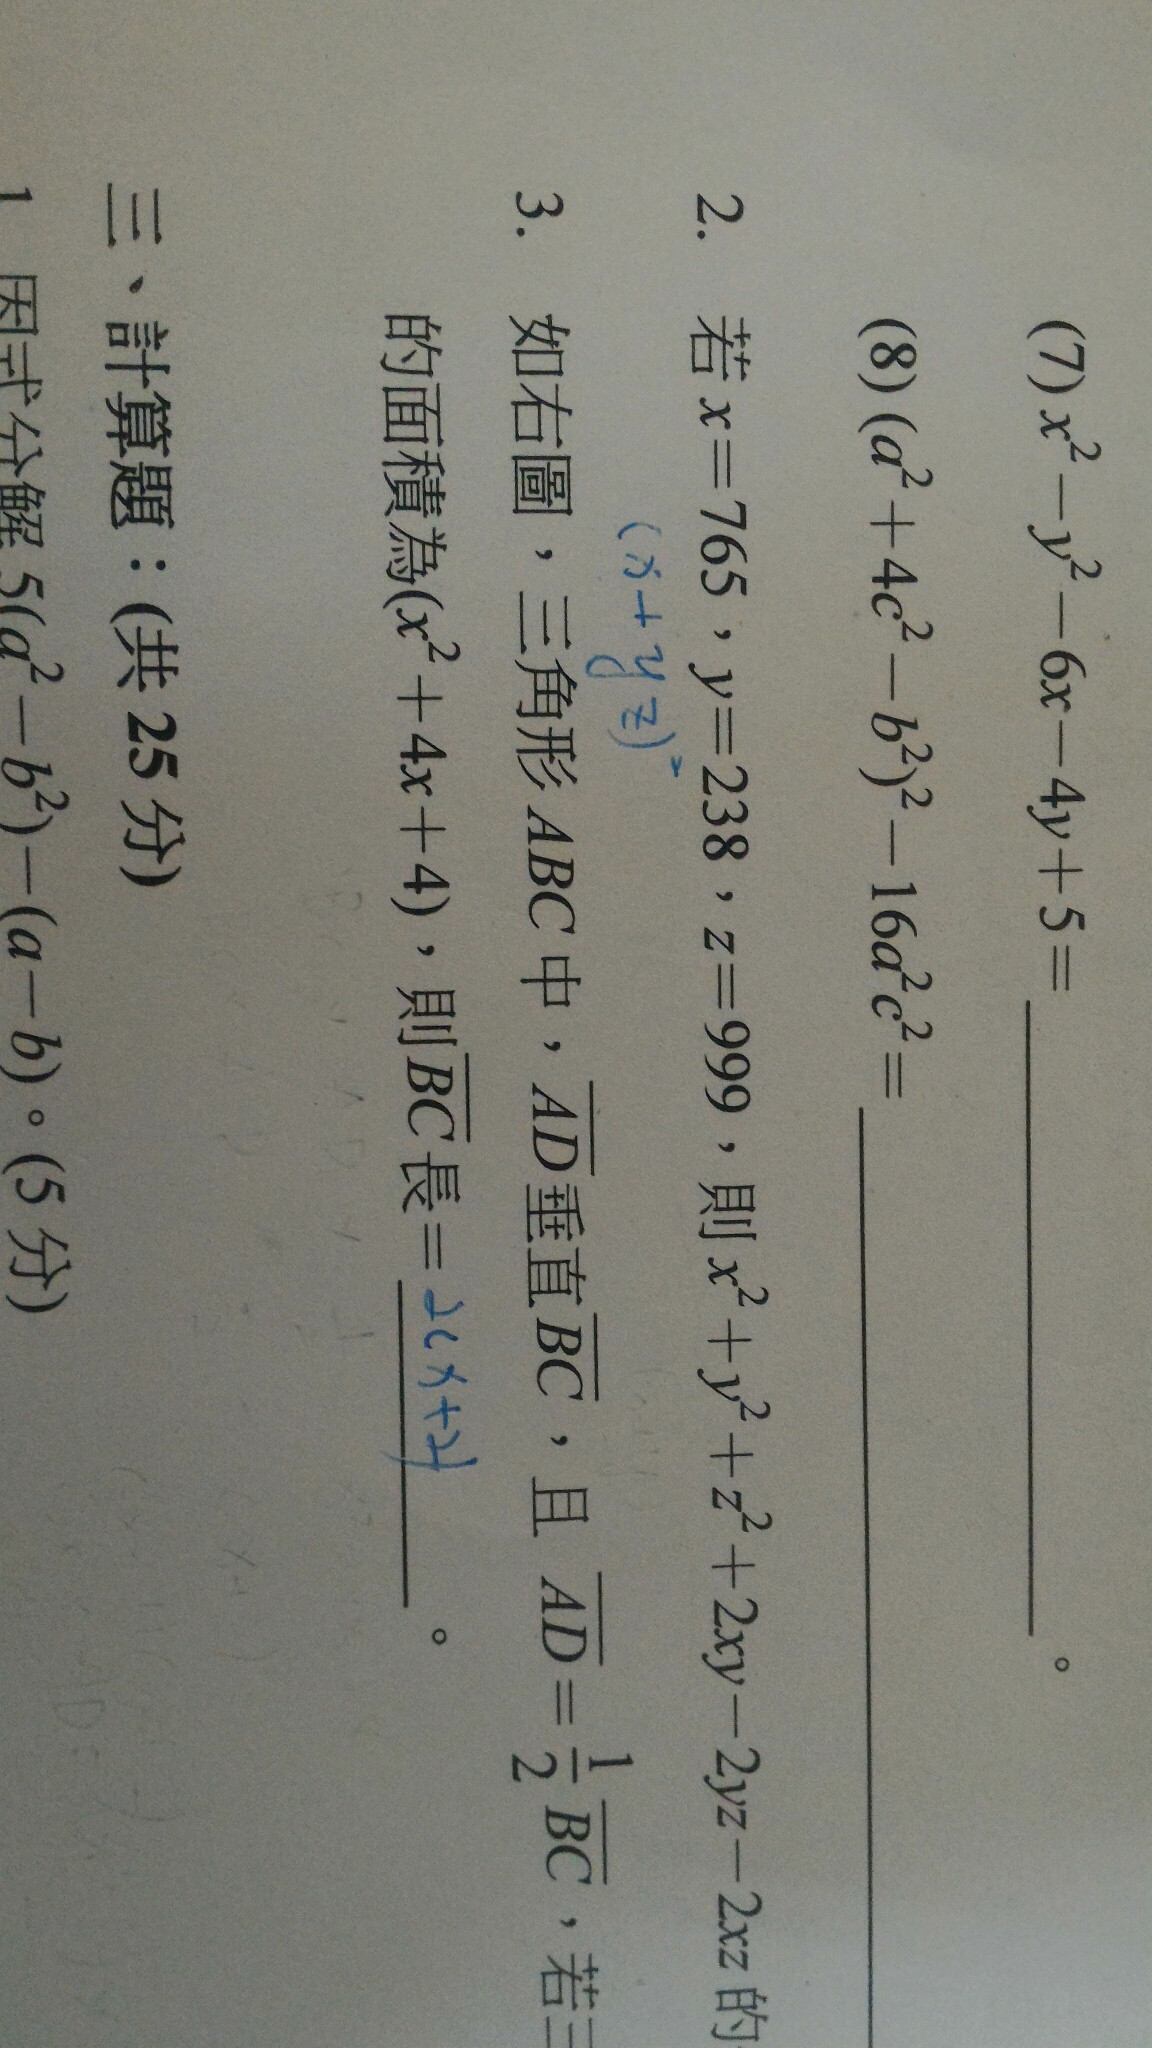 (7) x²－y²－6x－4y＋5＝ 。
(8) (a²＋4c²－b²)²－16a²c²＝
2. 若 x＝765，y＝238，z＝999，則 x²＋y²＋z²＋2xy－2yz－2xz 的
(x+y z)²
3. 如右圖，三角形 ABC 中，AD垂直BC，且 AD＝1/2 BC，若三
的面積為(x²＋4x＋4)，則BC長＝2(x+2) 。
三、計算題：(共 25 分)
1 因式分解 5(a²－b²)－(a－b)。(5 分)